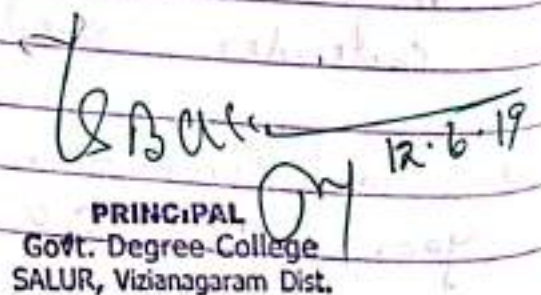 12.6.19
PRINCIPAL
Govt. Degree College
SALUR, Vizianagaram Dist.